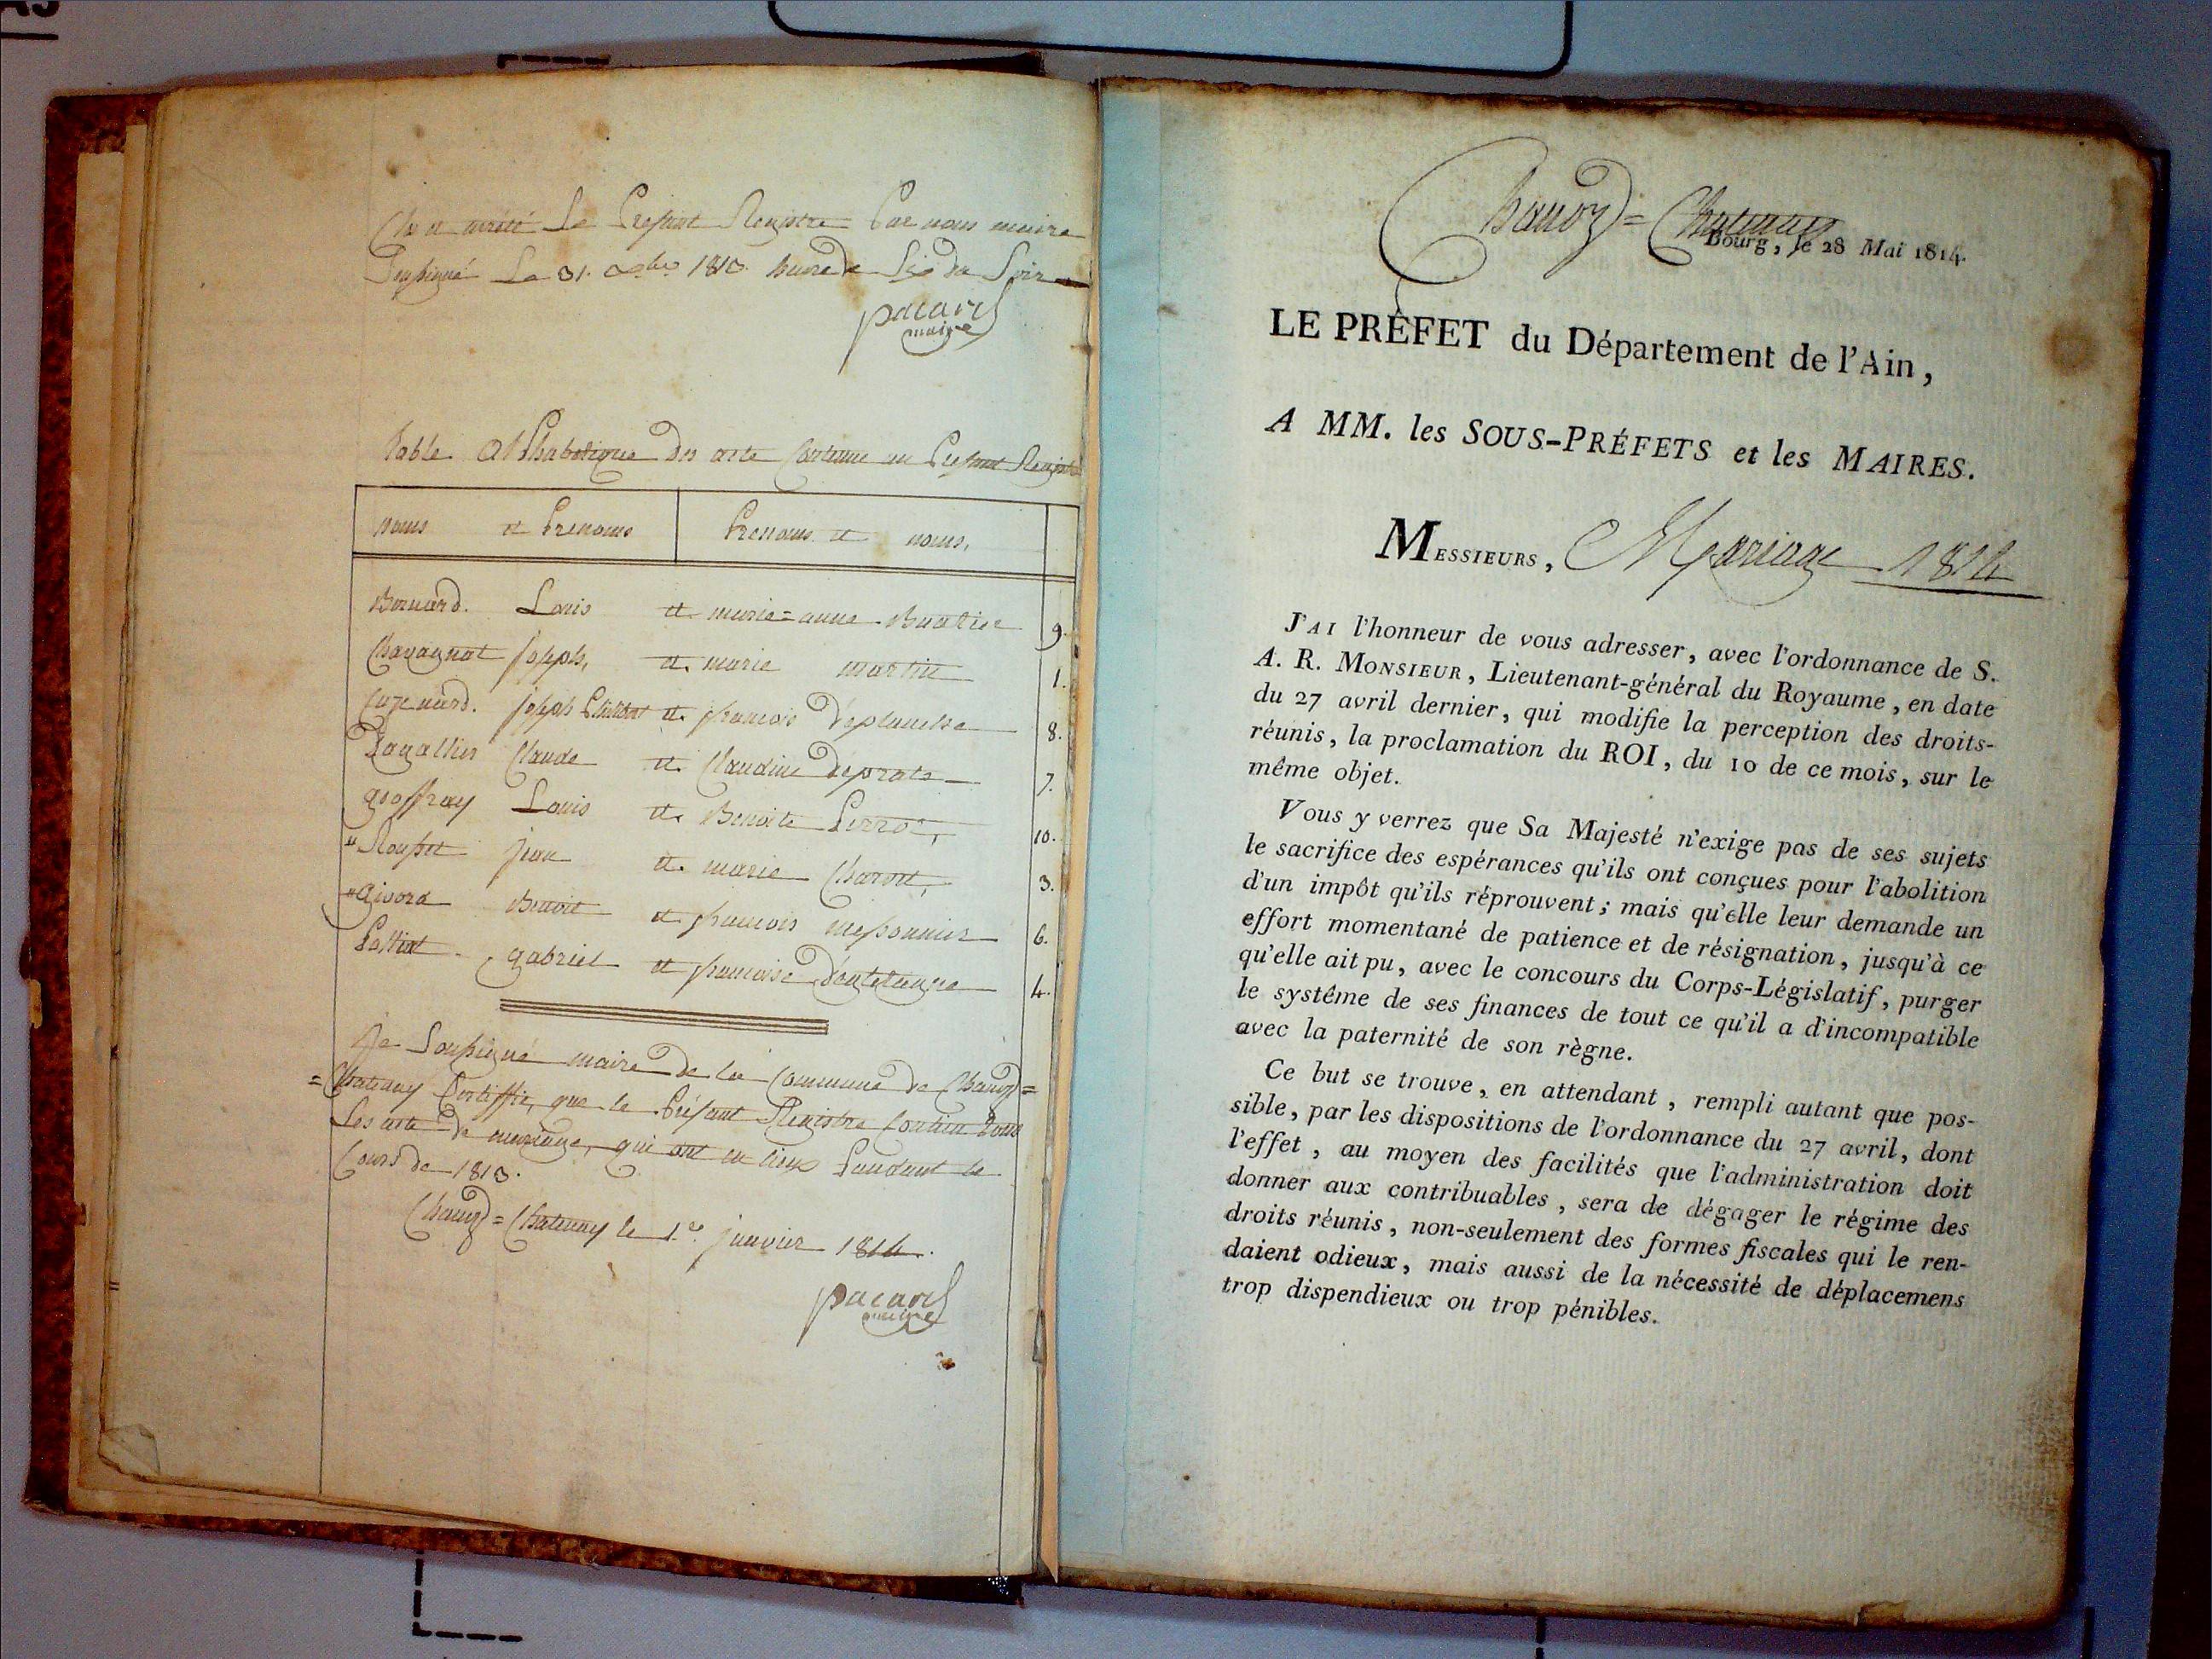 Clos et arrété Le Present Registre Par nous maire
Soussigné Le 31. Xbre 1813. heure de Six du Soir
pacard
maire
Table Alphabetique Des acte Contenue au Present Registre
noms et Prenoms Prenoms et noms,
Bernard. Louis et marie=anne Buatier 9.
Chavagnat joseph, et marie martin 1.
joseph Philibert et 8.
Dagallier Claude et Claudine desprats 7.
geoffray Louis et Benoite Perret, 10.
" Rousset jean et marie 3.
" givord Benoit et messonnier 6.
gabriel et françoise 4.
Je Soussigné maire de la Commune de Chanoz=
=Chatenay Certiffie, que le Présant Registre Contien Tous
Les acte de mariage, qui ont eu lieux Pandant le
Cours de 1813.
Chanoz=Chatenay le 1er janvier 1814.
pacard
maire
Chanoz=Chatenay
Bourg, le 28 Mai 1814.
LE PRÉFET du Département de l'Ain,
A MM. les SOUS-PRÉFETS et les MAIRES.
MESSIEURS, Mariage 1814
J'AI l'honneur de vous adresser, avec l'ordonnance de S.
A. R. MONSIEUR, Lieutenant-général du Royaume, en date
du 27 avril dernier, qui modifie la perception des droits-
réunis, la proclamation du ROI, du 10 de ce mois, sur le
même objet.
Vous y verrez que Sa Majesté n'exige pas de ses sujets
le sacrifice des espérances qu'ils ont conçues pour l'abolition
d'un impôt qu'ils réprouvent; mais qu'elle leur demande un
effort momentané de patience et de résignation, jusqu'à ce
qu'elle ait pu, avec le concours du Corps-Législatif, purger
le systême de ses finances de tout ce qu'il a d'incompatible
avec la paternité de son règne.
Ce but se trouve, en attendant, rempli autant que pos-
sible, par les dispositions de l'ordonnance du 27 avril, dont
l'effet, au moyen des facilités que l'administration doit
donner aux contribuables, sera de dégager le régime des
droits réunis, non-seulement des formes fiscales qui le ren-
daient odieux, mais aussi de la nécessité de déplacemens
trop dispendieux ou trop pénibles.